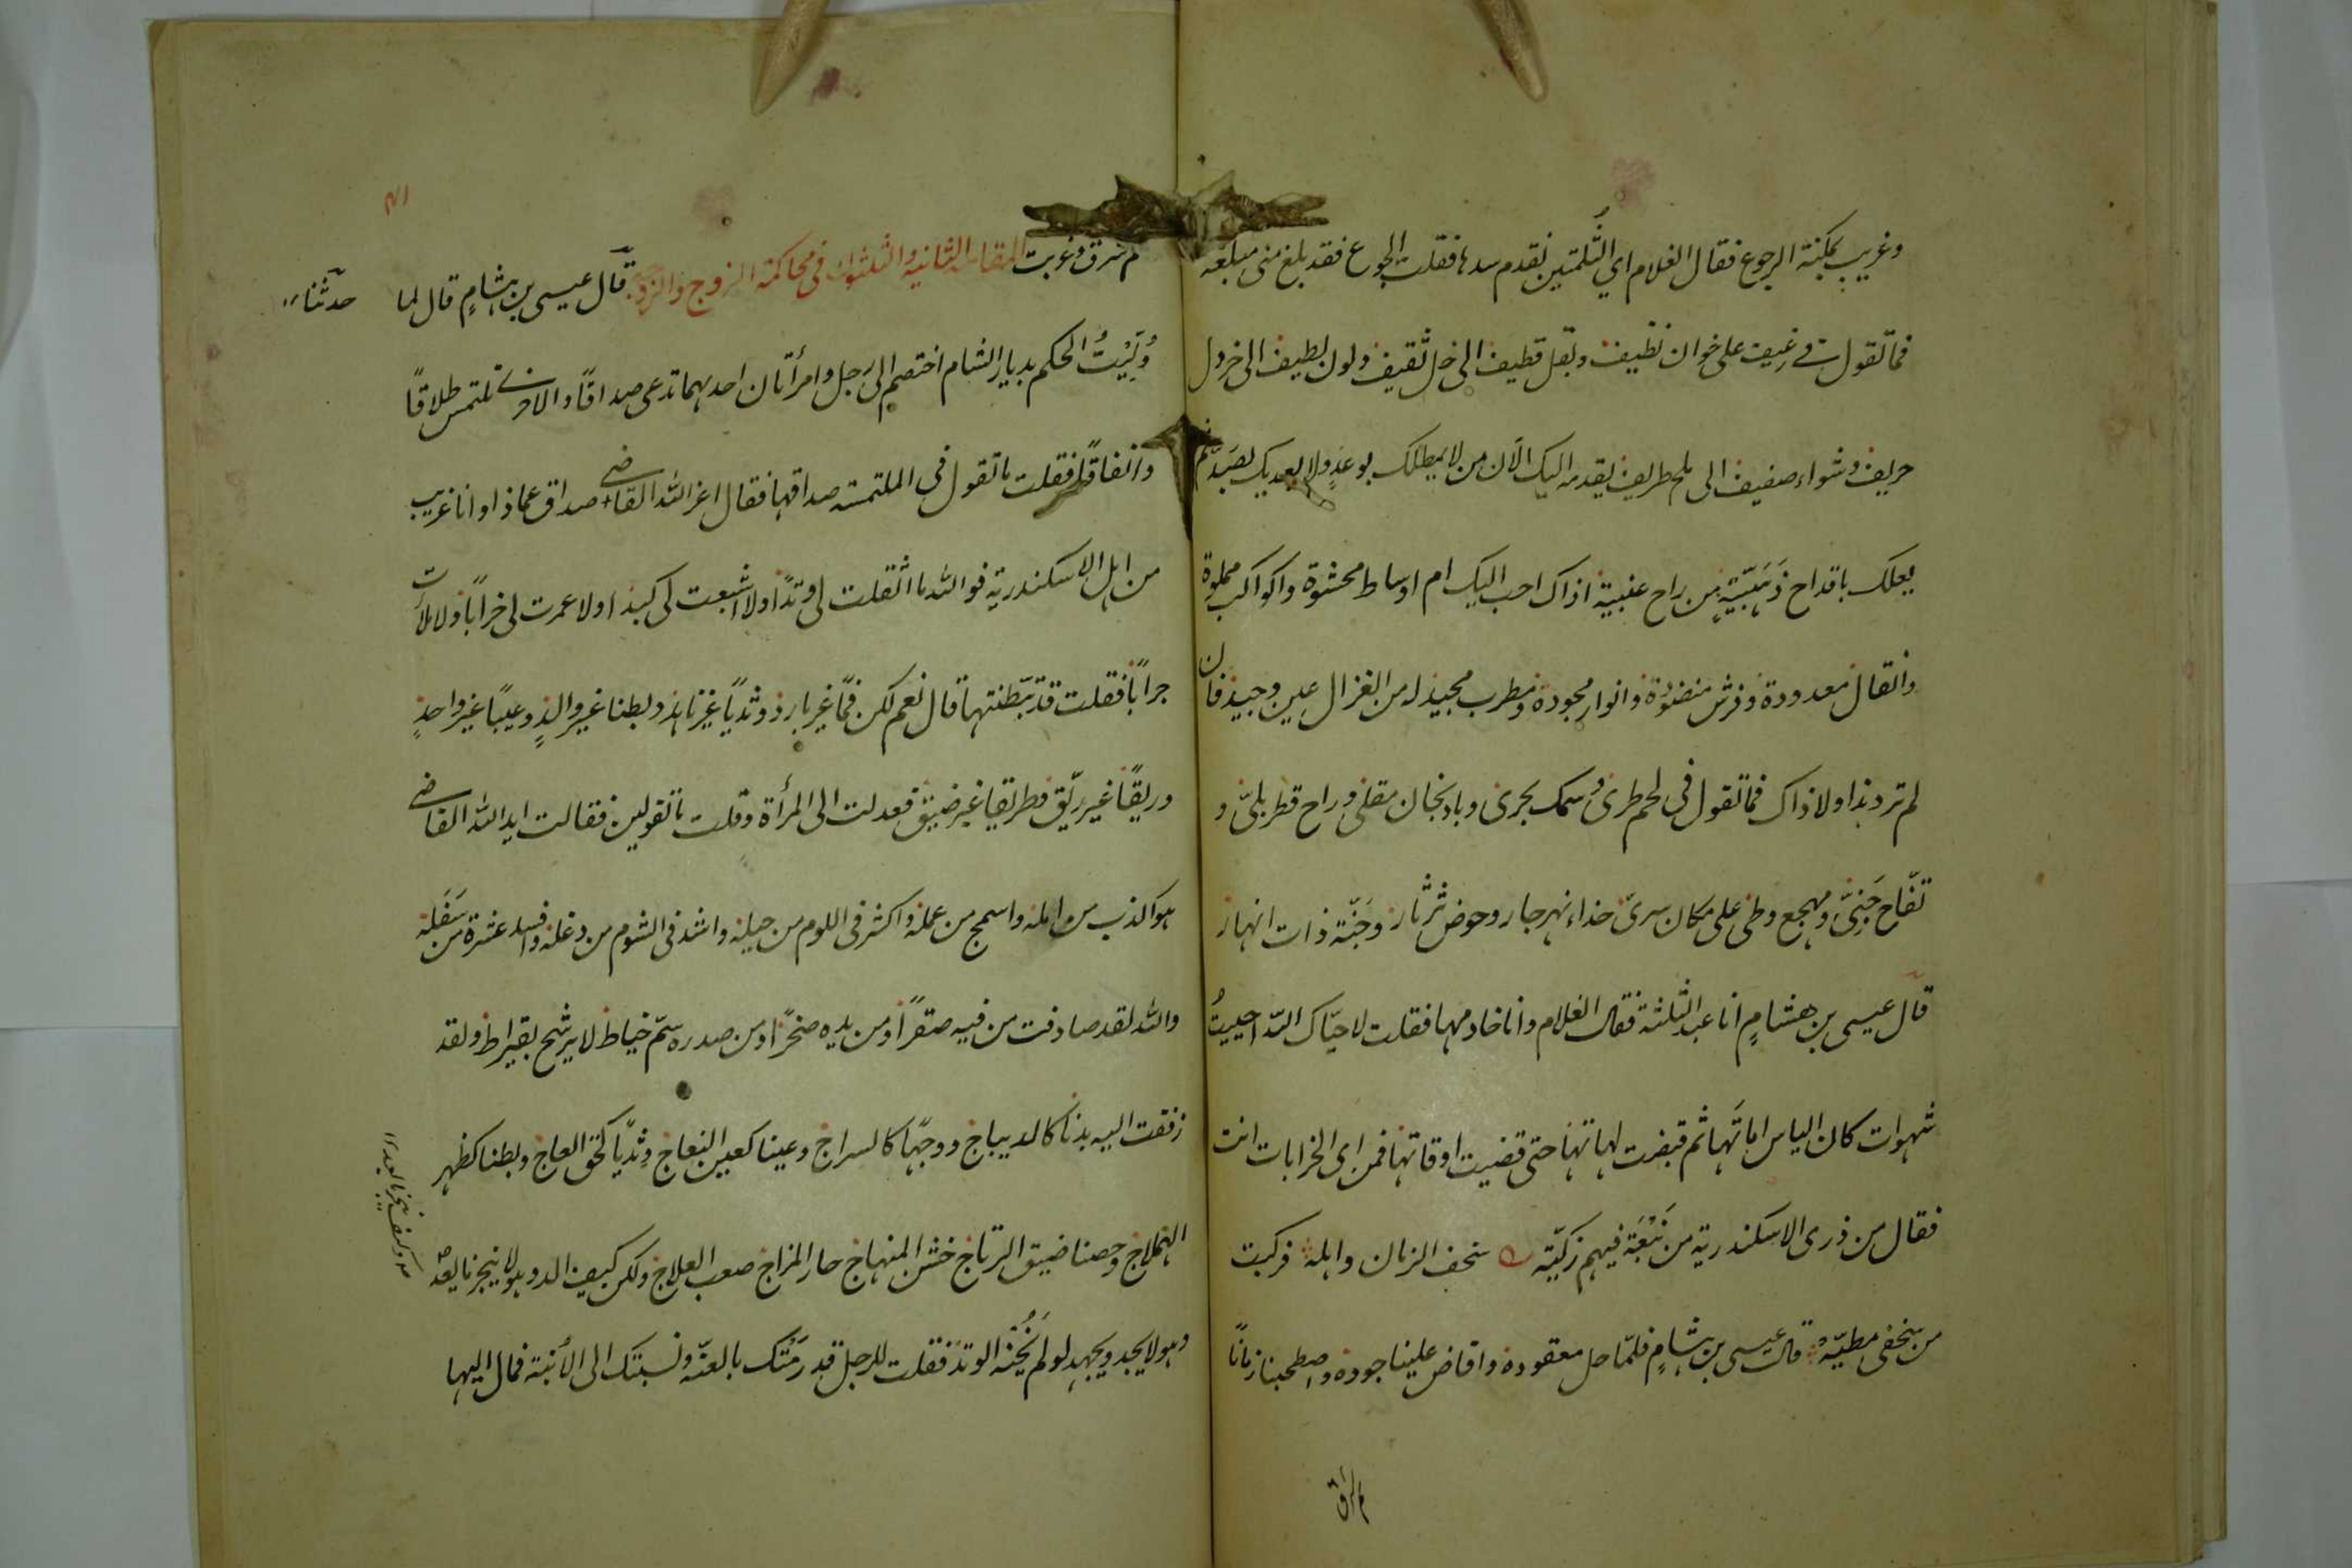 وغريب يمكنه الرجوع فقال الغلام اي الثُّلمتين نقدم سدها فقلت الجوع فقد بلغ مني مبلغه
فما تقول في رغيف على خوان نظيف وبقل قطيف الى خل ثقيف ولون لطيف الى خردل
حريف وشواء صفيف الى ملح طريف يقدمه اليك الآن من لا يمطلك بوعد ولا يعذبك بصبد ثم
يعلك باقداح ذَهَبَيّة من راح عنبية اذاك احب اليك ام اوساط محشوة واكواكب مملوة
وانقال معدودة وفرش منضدة وانوار مجودة ومطرب مجيد له من الغزال عين وجيد فان
لم ترد هذا ولا ذاك فما تقول في لحم طري وسمك بحري وباذنجان مقلي وراح قطربلي و
تفّاح جَنِيّ ومهجع وطي على مكان سريّ حذاء نهر جار وحوض ثرثار وجَنّة ذات انهار
قال عيسى بن هشامٍ انا عبد الثلثة فقال الغلام وانا خادمها فقلت لا حيّاك اللّه احييتُ
شهوات كان الياس اماتَهَا ثم قبضت لهاتها حتى قضيت اوقاتها فمن اي الخرابات انت
فقال من ذرى الاسكندرية من نَبْعَةٍ فيهم زكيّة سخف الزمان واهله فركبت
من سخفي مطيّه قال عيسى بن هشامٍ فلمّا حل معقوده وافاض علينا جوده واصطحبنا زمانًا
م شرق وغربت المقامة الثانية والثلثون في محاكمة الزوج والزوجة قال عيسى بن هشامٍ قال لما
حدثنا
وُلِّيْتُ الحكم بديار الشام اختصم الي رجل وامرأتان احديهما تدعى صداقًا والاخرى تلتمس طلاقًا
وانفاقًا فقلت ما تقول في الملتمسة صداقها فقال اعز الله القاضي صداق عماذا وانا غريب
من اهل الاسكندرية فوالله ما اثقلت لي وتدًا ولا اشبعت لي كبدا ولا عمرت لي خرابًا ولا ملأت
جرابًا فقلت قد تبّطنتها قال نعم لكن فمًا غير بارد وثديًا غير ناهد وبطنا غير والدٍ وعيبًا غير واحدٍ
وريقًا غير ريّق وطريقا غير ضيّق فعدلت الى المرأة وقلت ما تقولين فقالت ايد الله القاضي
هو اكذب من امله واسمج من عمله واكثر في اللوم من حيله واشد في الشوم من دغله وافسد عشرة من سَفَله
والله لقد صادفت من فيه صقرًا ومن يده صخرًا ومن صدره سمّ خياط لا يرشح بقيراط ولقد
زففت اليه بدنا كالديباج ووجهًا كالسراج وعينا كعين النعاج وثديًا كحق العاج وبطنا كظهر
الهملاج وحصنا ضيق الرتاج خشن المنهاج حار المزاج صعب العلاج ولكن كيف الد وهو لا ينجز ما يعد
وهو لا يجد ويجهد لو لم يَخُنْهُ الوتد فقلت للرجل قد رَمَتْك بالعنّه ونسبتك الى الأبنة فمال اليها